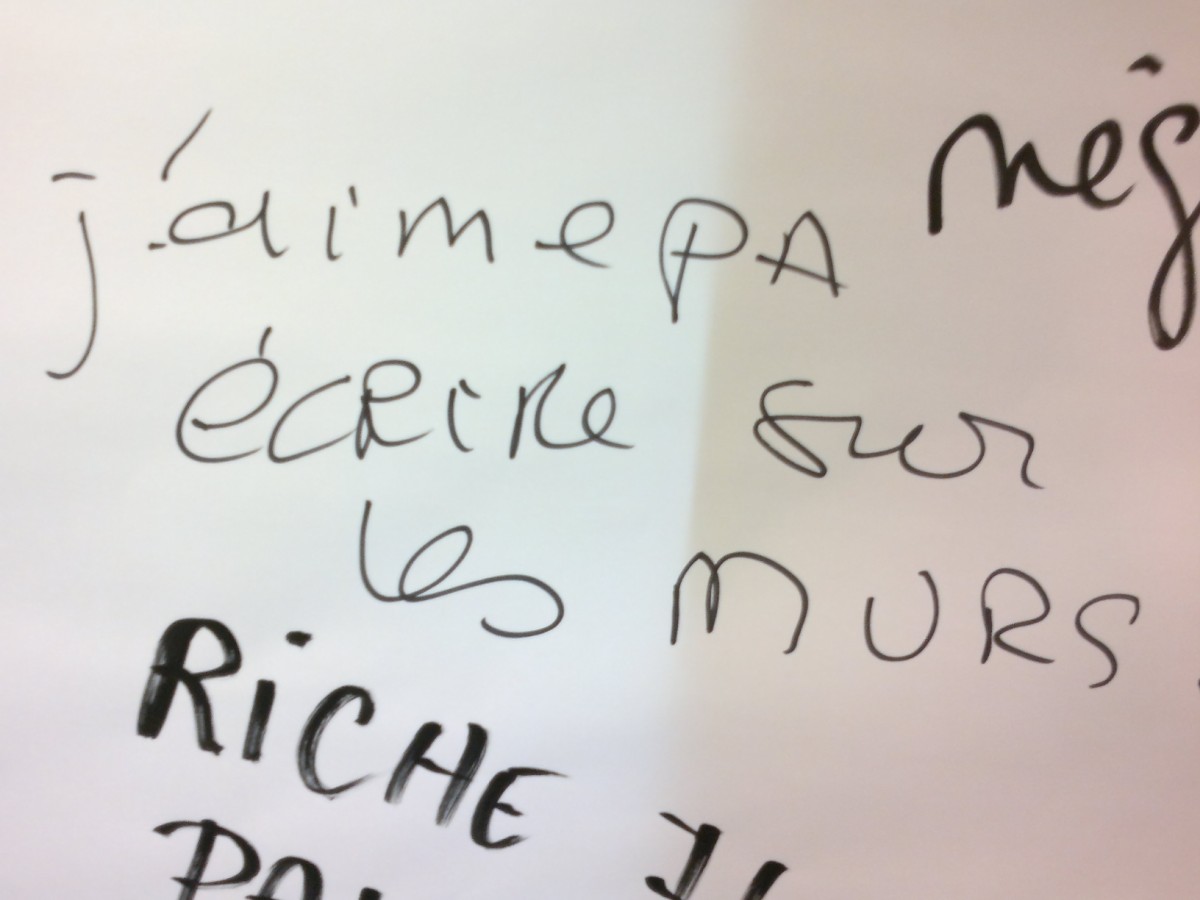 j'aime pA
écRiRe sur
les MURS
RiCHE